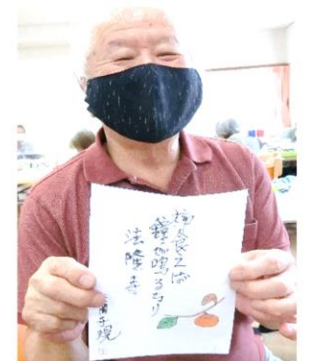 柿食えば
鐘が鳴るなり
法隆寺
岡子規